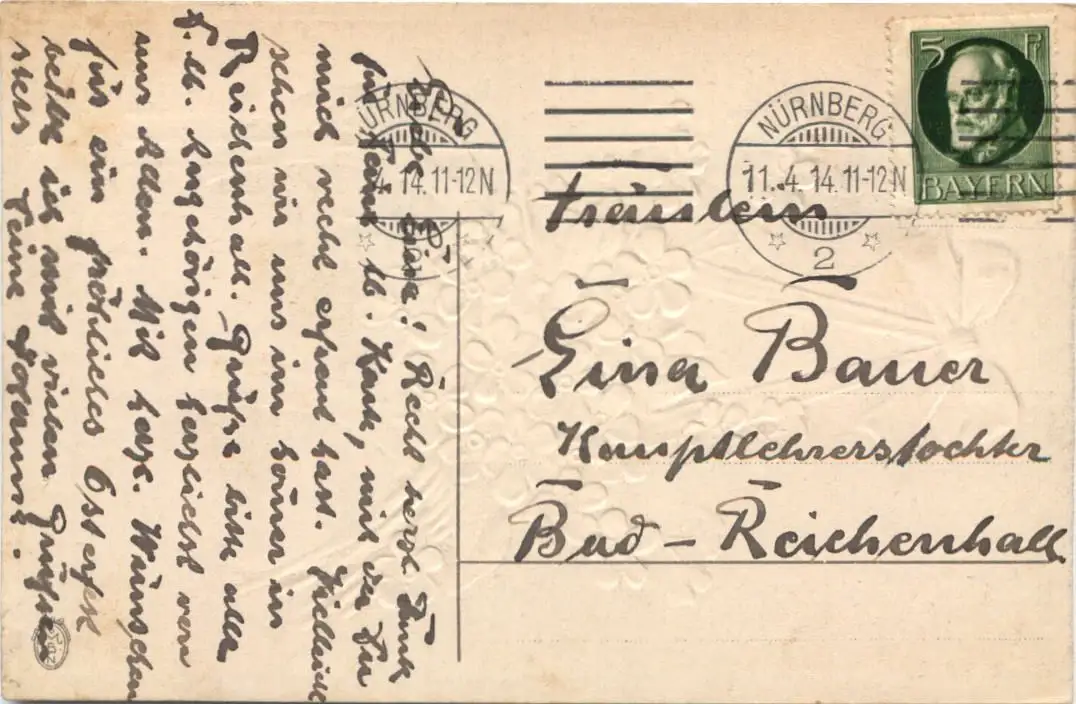 Liebe Gina! Recht herzl. Dank
für Deine lb. Karte, mit der Du
mich recht erfreut hast. Vielleicht
sehen wir uns im Sommer in
Reichenhall. Grüße bitte alle
D. lb. Angehörigen herzlichst von
uns Allen. Mit herzl. Wünschen
für ein fröhliches Osterfest
bleibe ich mit vielen Grüßen
stets Deine
NÜRNBERG
4. 14. 11-12N
NÜRNBERG
11. 4. 14. 11-12N
2
5 Pf
BAYERN
Fräulein
Gina Bauer
Hauptlehrerstochter
Bad - Reichenhall